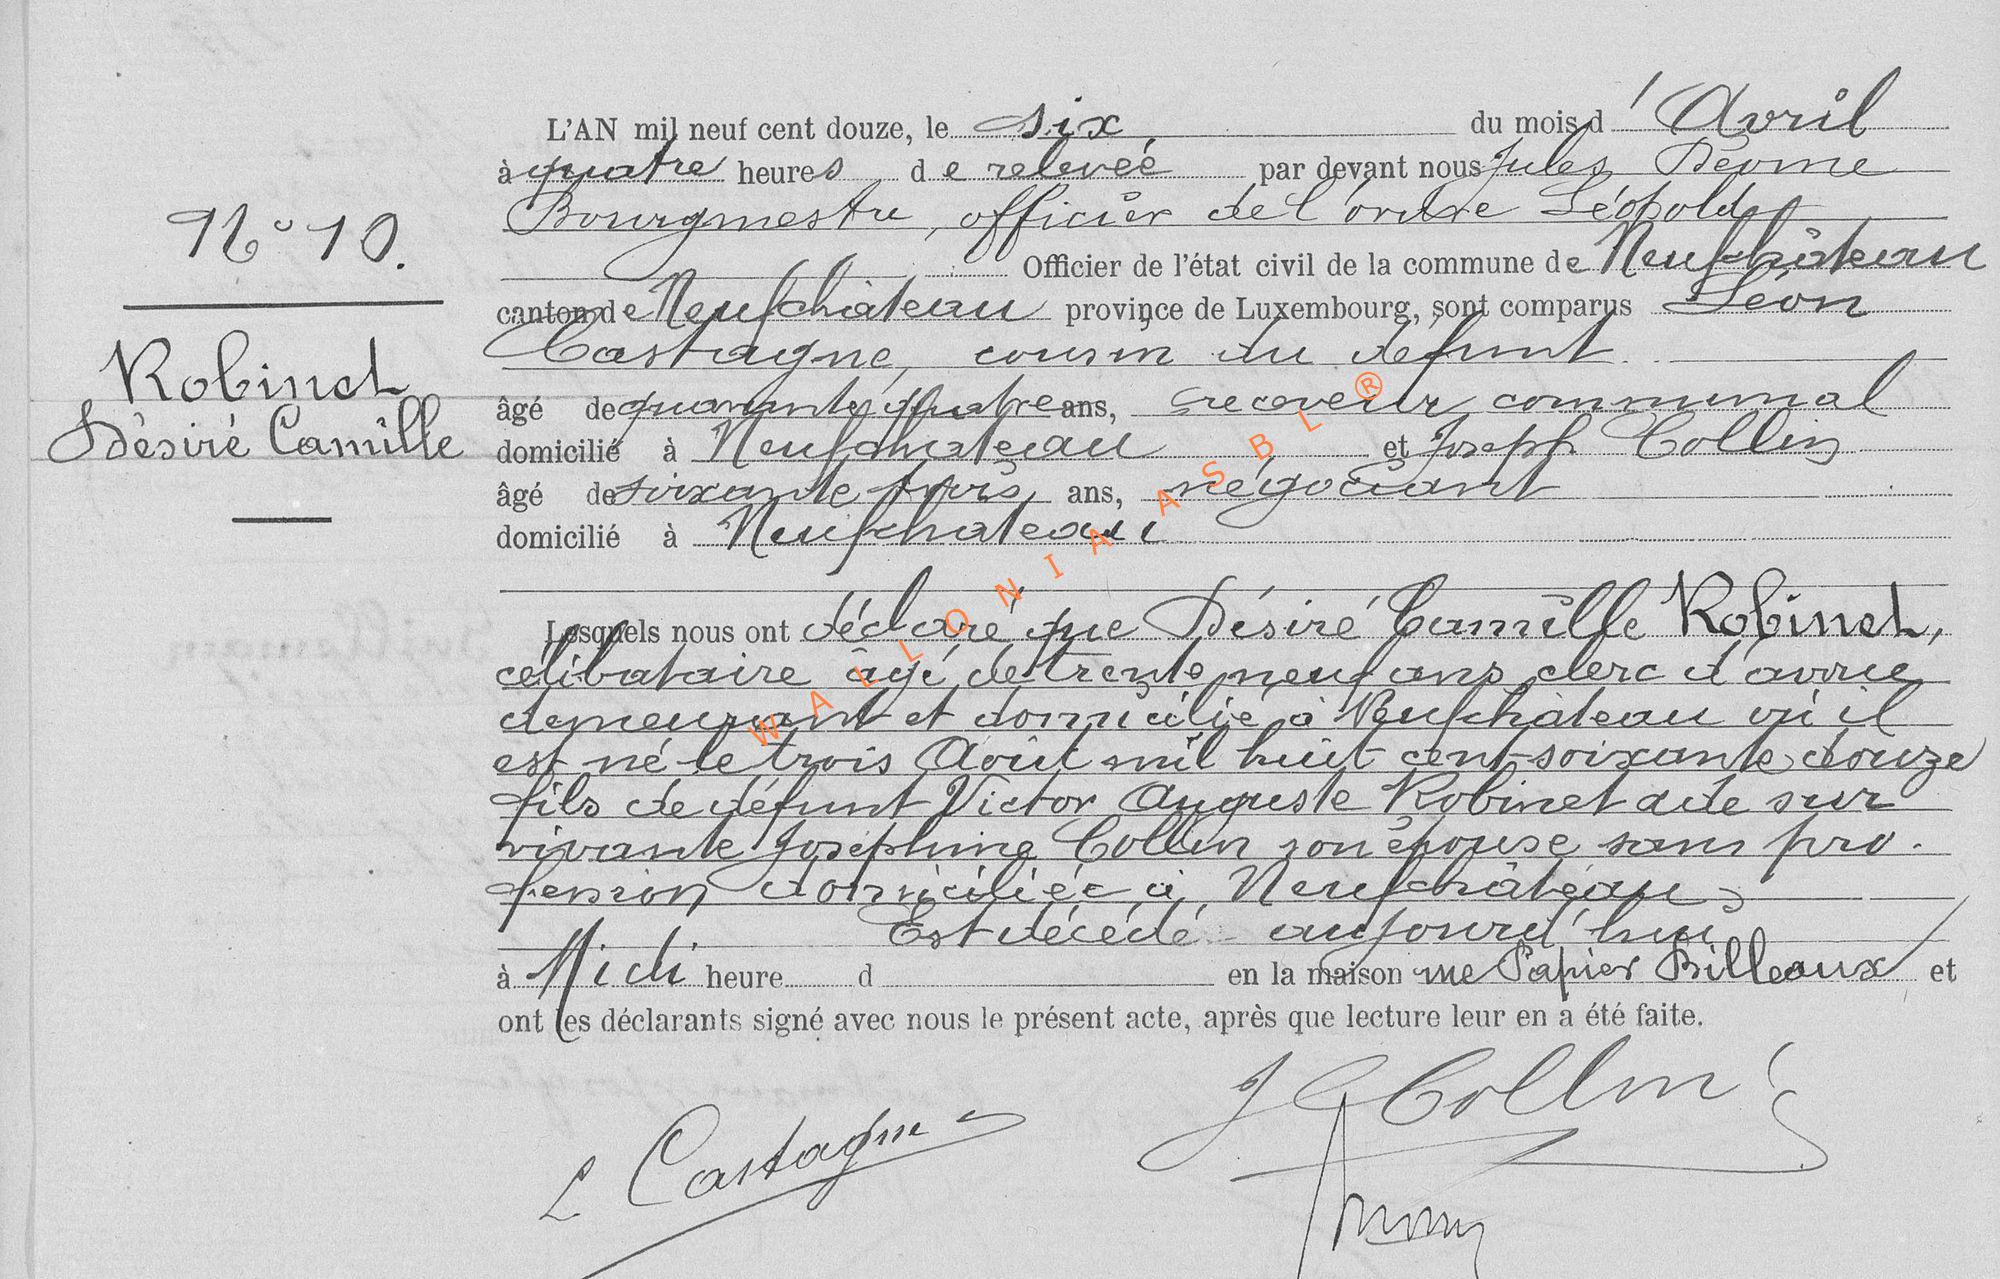 N° 10.
Robinet
Désiré Camille
L'AN mil neuf cent douze, le six du mois d'Avril
à quatre heures de relevée par devant nous Jules
Bourgmestre, officier de l'ordre Léopold
Officier de l'état civil de la commune de Neufchâteau
canton de Neufchâteau province de Luxembourg, sont comparus Léon
Castagne, cousin du défunt
âgé de quarante quatre ans, receveur communal
domicilié à Neufchateau et Joseph Collin
âgé de soixante trois ans, négociant
domicilié à Neufchateau
Lesquels nous ont déclaré que Désiré Camille Robinet,
célibataire âgé de trente neuf ans clerc d'avoue
demeurant et domicilié à Neufchâteau où il
est né le trois Août mil huit cent soixante douze
fils de défunt Victor Auguste Robinet et de sur
vivante Joséphine Collin son épouse sans pro.
fession domiciliée à Neufchâteau,
Est décédé aujourd'hui
à Midi heure d en la maison rue Papier Billeaux et
ont les déclarants signé avec nous le présent acte, après que lecture leur en a été faite.
L Castagne
J Collin
WALLONIA ASBL ®